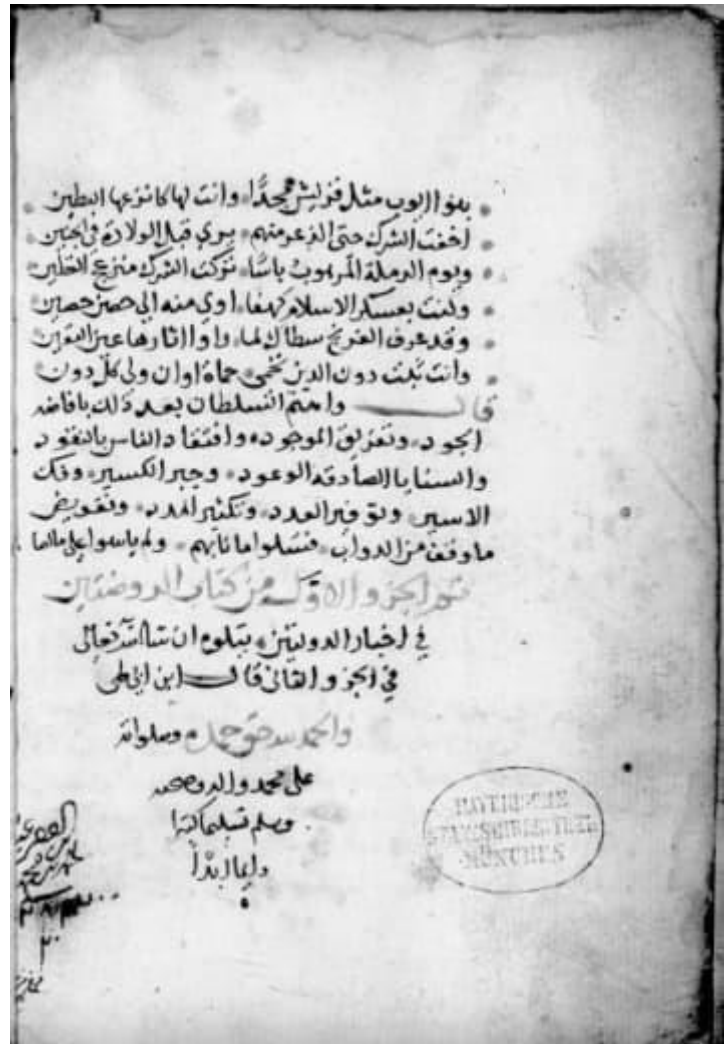 بنو ايوب مثل قريش مجدا وانت لها كانزعها البطين
اخفت الشرك حتى الذعر منهم يري قبل الولادة في الجنين
ويوم الرملة المرهوب باسا تركت الشرك منزعج القطين
وكنت بعسكر الاسلام كهفا اوي منه الي حصن حصين
وقد عرف الفرنج سطاك لما راوا اثارها عين اليقين
وانت ثبت دون الدين تحمي حماه اوان ولي كل دون
قال واهتم السلطان بعد ذلك بافاضه
الجود وتفريق الموجود وافتقاد الناس بالنقود
والصادقه الوعود وجبر الكسير وفك
الاسير وتوفير العدد وتكثير المدد وتعويض
ما وقف من الدواب فتسلوا ما نابهم ولم ياسوا علي
تم الجزو الاول من كتاب الروضتين
في اخبار الدولتين يتلوه ان شا الله تعالى
في الجزو الثاني قال ابن ابي طي
والحمد لله حق حمده وصلواته
على محمد واله وصحبه
وسلم تسليما كثيرا
دايما ابدا
BAYERISCHE
STAATSBIBLIOTHEK
MÜNCHEN